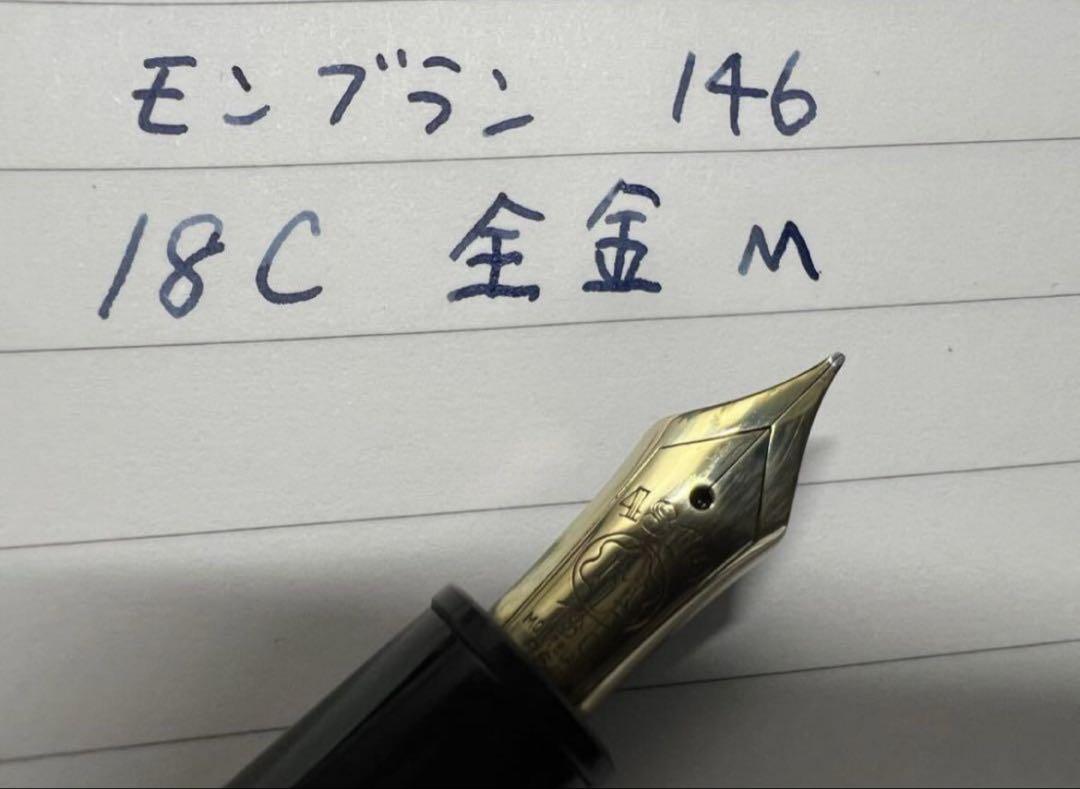 モンブラン 146
18C 全金 M
4810